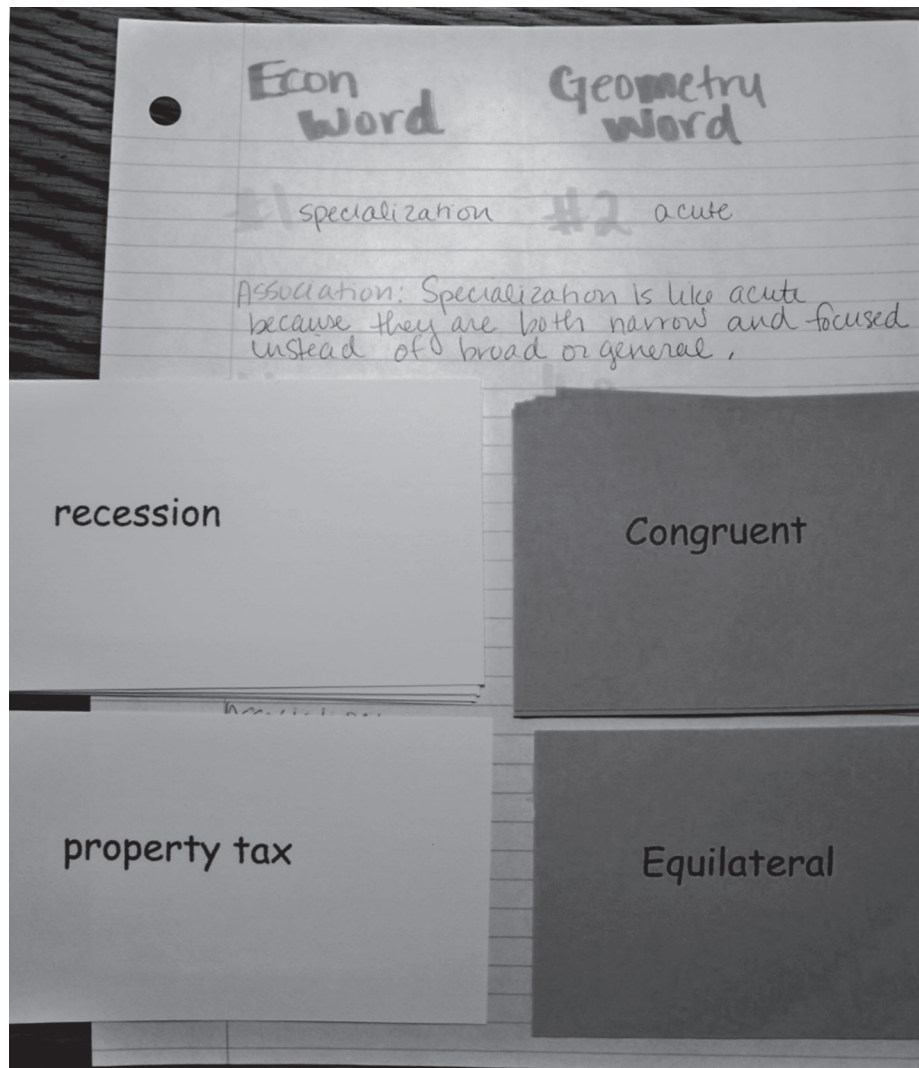 Econ Word
Geometry Word
#1 specialization
#2 acute
Association: Specialization is like acute
because they are both narrow and focused
instead of broad or general.
recession
Congruent
property tax
Equilateral